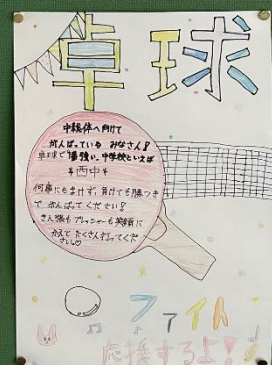 卓球
中総体へ向けて
がんばっている みなさん!
卓球で1番強い、中学校といえば
西中
何事にもまけず、負けても勝つき
で がんばってください!
きん張もプレッシャーも笑顔に
かえて たくさん打ってくだ
さい♡
ファイト
応援するよ!